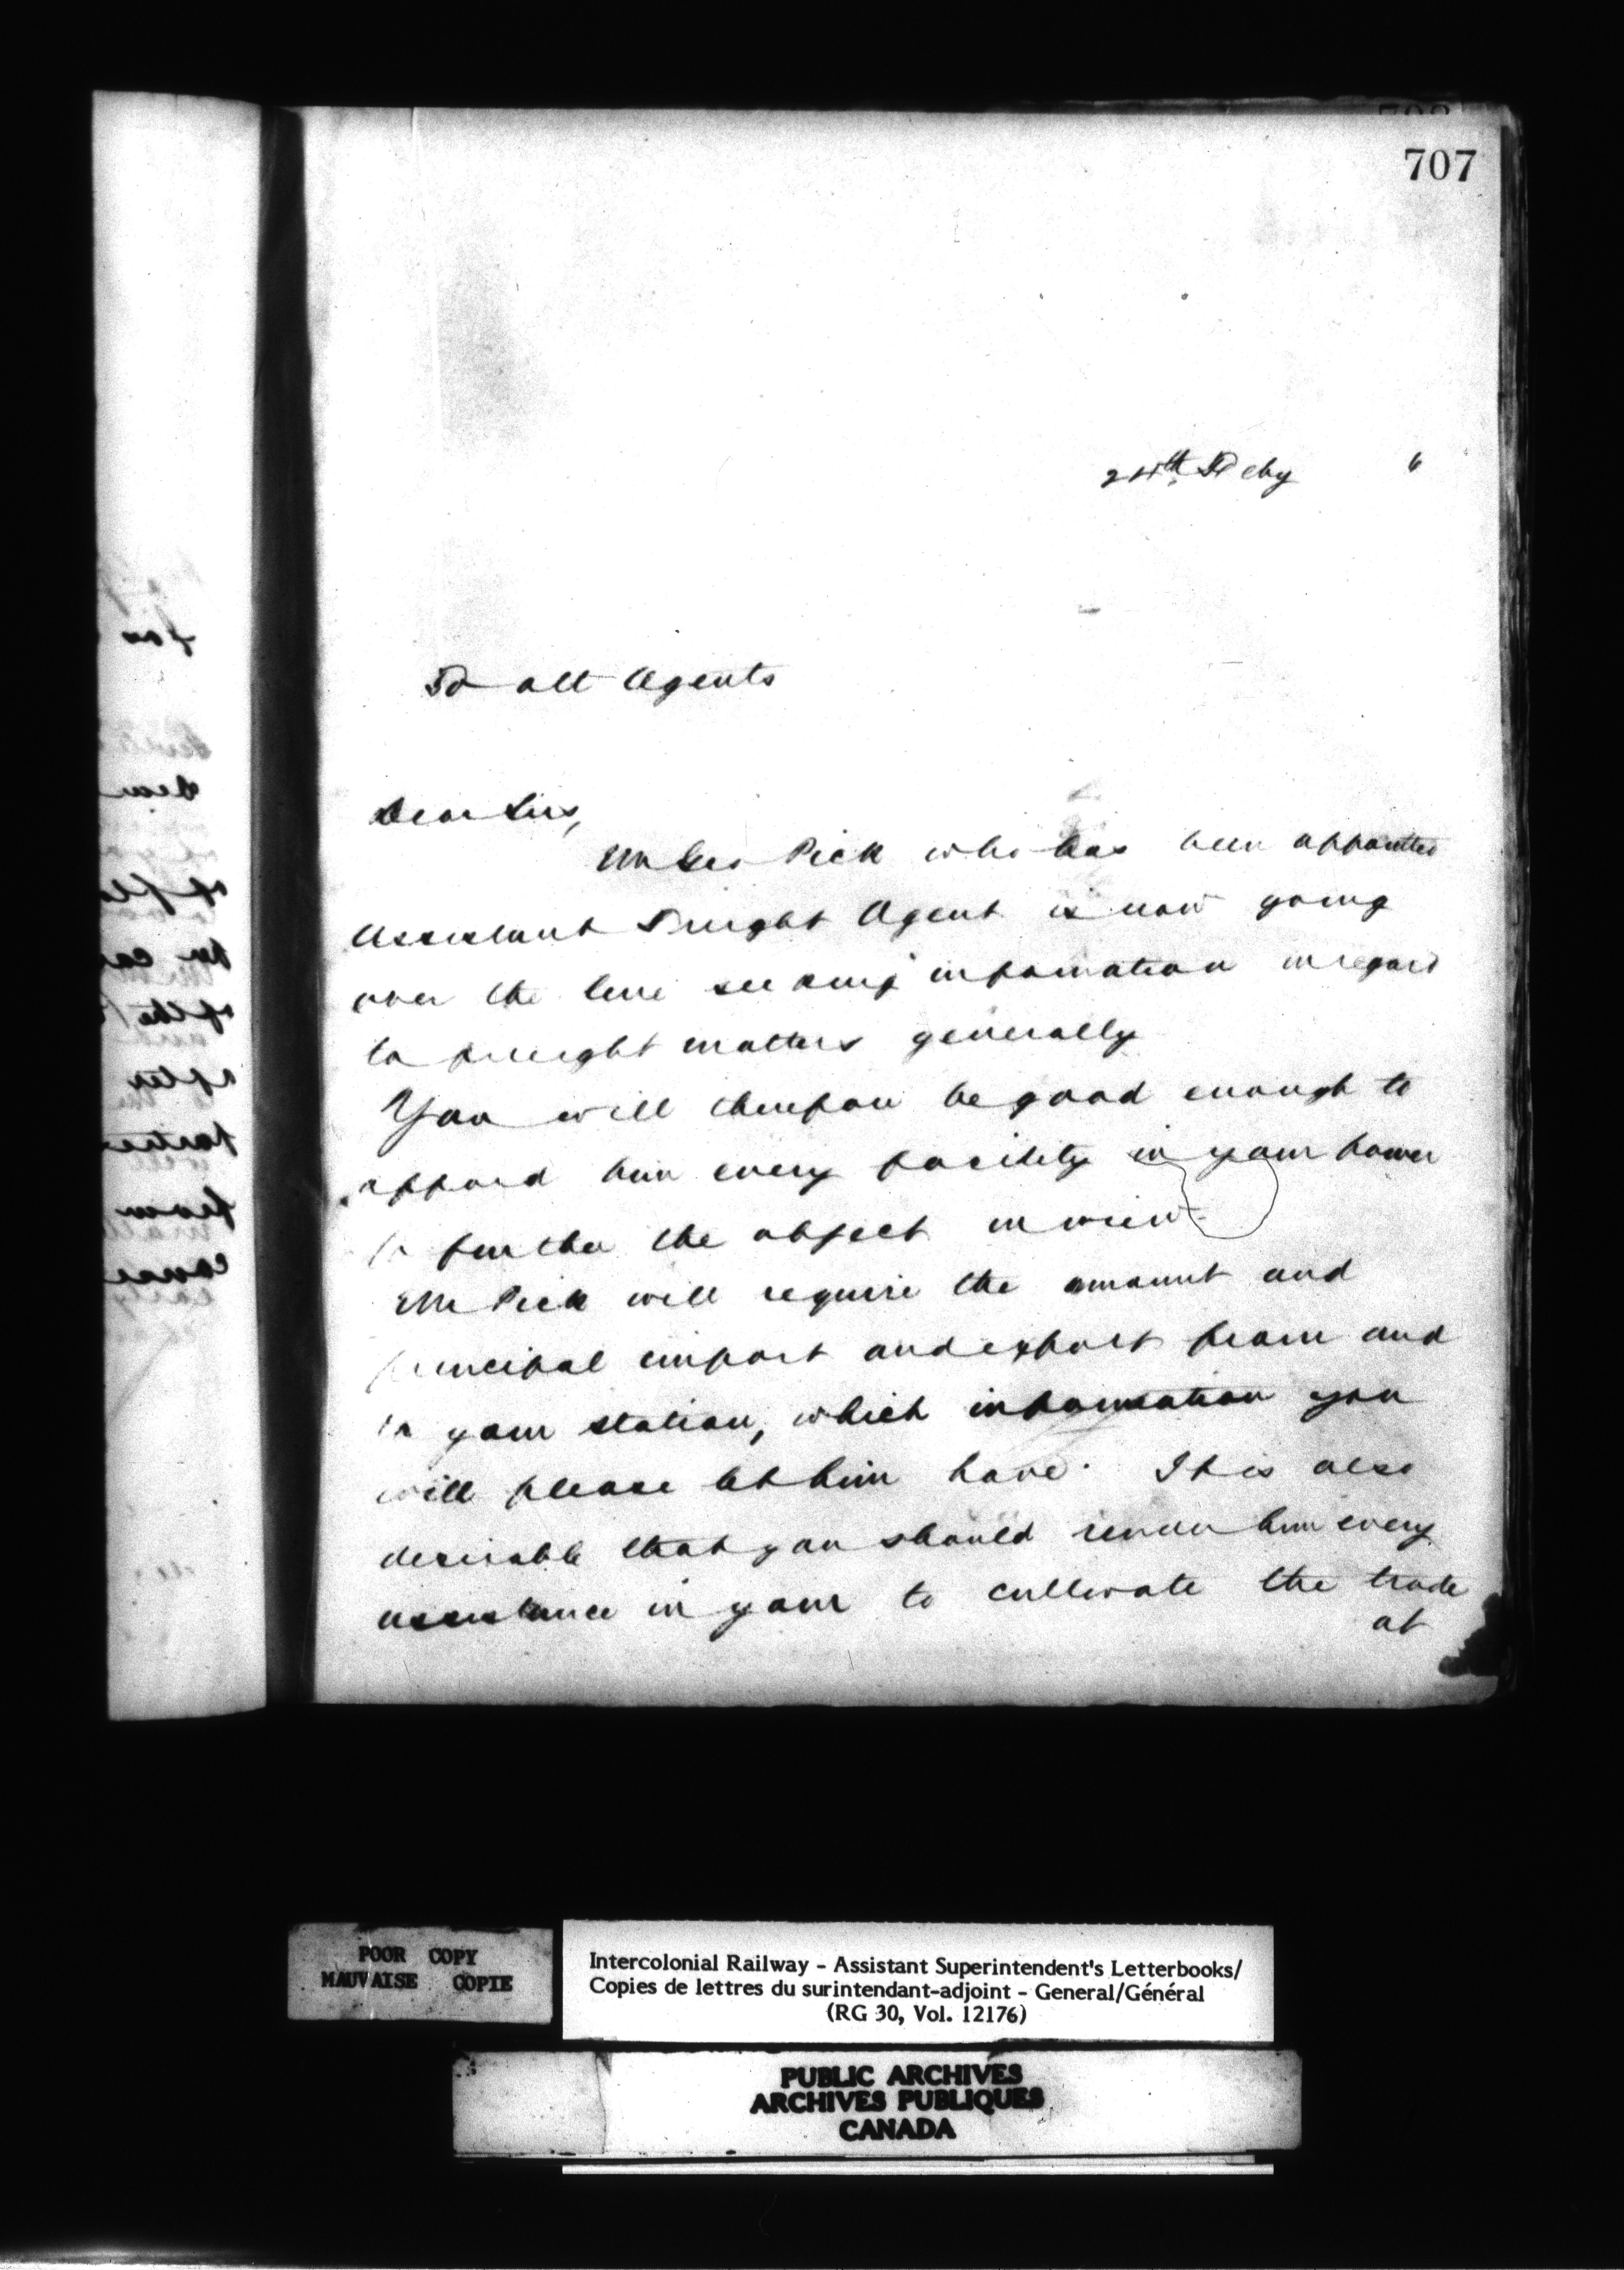 707
24th Feby 6
To all Agents
Dear Sirs,
Mr Geo Pick who has been appointed
Assistant Freight Agent is now going
over the line seeking information in regard
to freight matters generally
You will therefore be good enough to
afford him every facility in your power
to further the object in view
Mr Pick will require the amount and
principal import and export from and
to your station, which information you
will please let him have. It is also
desirable that you should render him every
assistance in your to cultivate the trade
at
POOR COPY
MAUVAISE COPIE
Intercolonial Railway - Assistant Superintendent's Letterbooks/
Copies de lettres du surintendant-adjoint - General/Général
(RG 30, Vol. 12176)
PUBLIC ARCHIVES
ARCHIVES PUBLIQUES
CANADA